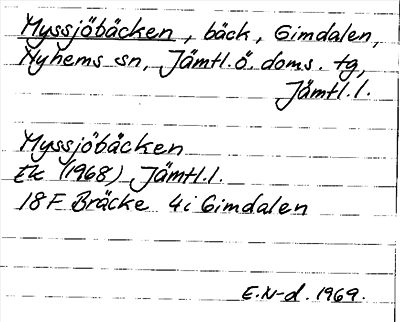 Myssjöbäcken, bäck, Gimdalen,
Nyhems sn, Jämtl.ö. doms. tg,
Jämtl.l.
Myssjöbäcken
Ek (1968) Jämtl.l.
18F Bräcke 4i Gimdalen
E.N-d. 1969.